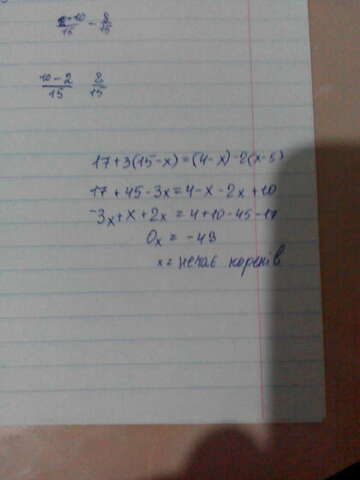 x-10/15 - 8/15
10-2/15 8/15
17+3(15-x)=(4-x)-2(x-5)
17+45-3x=4-x-2x+10
-3x+x+2x=4+10-45-17
0x=-48
x= немає коренів